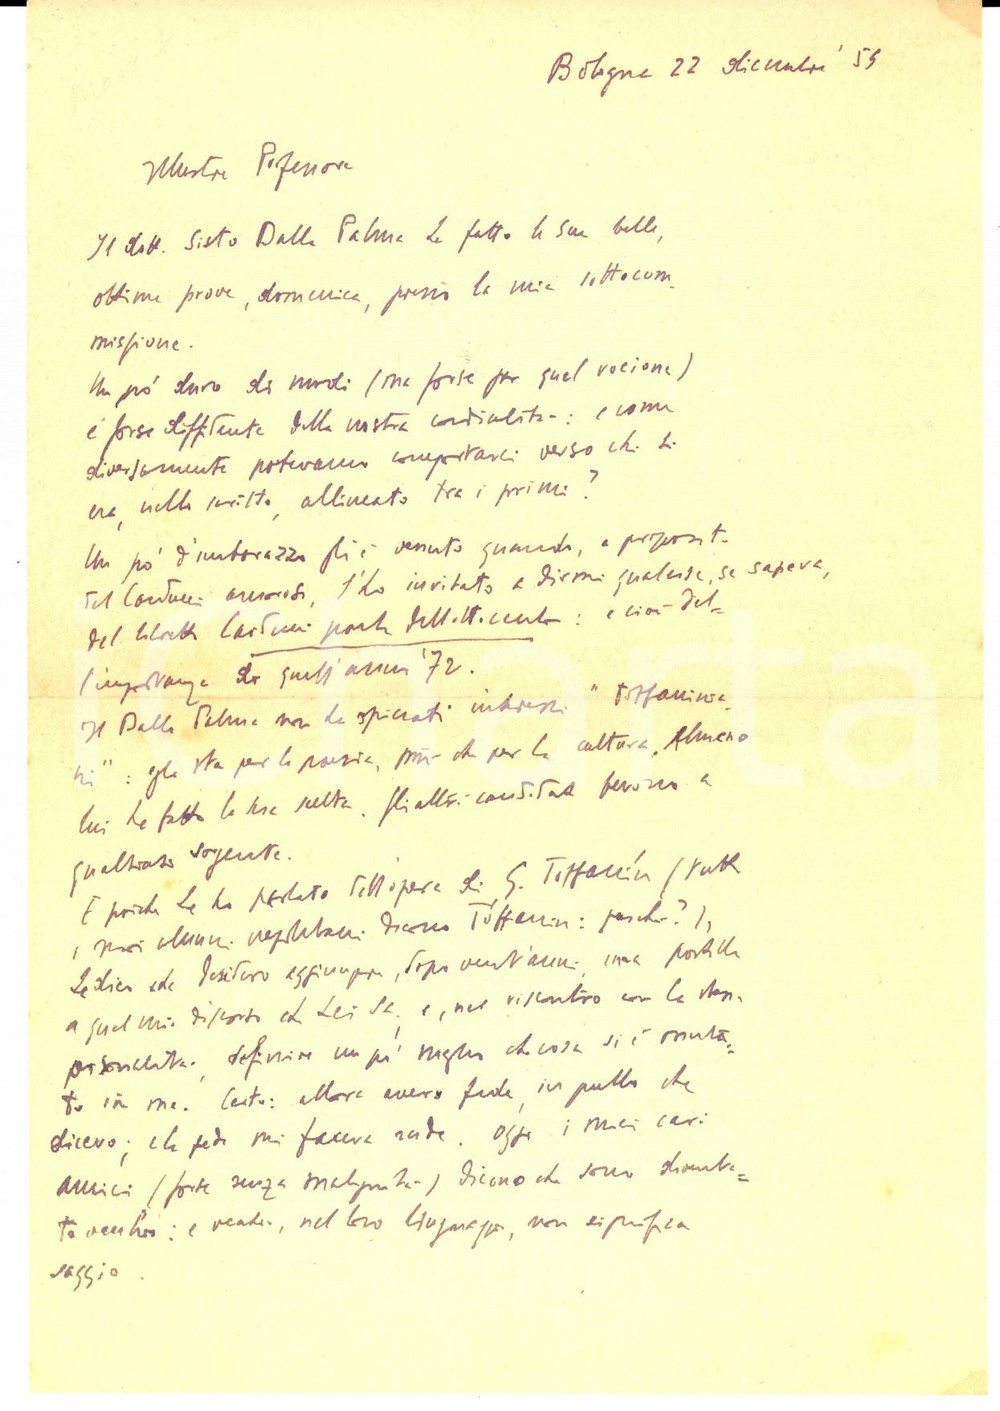 Bologna 22 dicembre '55
Illustre Professore
Il dott. Sisto Dalla Palma ha fatto le sue belle,
ottime prove, domenica, presso la mia sottocom-
missione.
Un po' duro di modi (ma forse per quel vocione)
e forse diffidente della nostra cordialità: e come
diversamente potevamo comportarci verso chi si
era, nello scritto, allineato tra i primi?
Un po' d'imbarazzo gli è venuto quando, a proposito
del Carducci amoroso, l'ho invitato a dirmi qualcosa, se sapeva,
del libretto Carducci poeta dell'Ottocento: e cioè del-
l'importanza di quell'anno '72.
Il Dalla Palma non ha spiccati interessi "toffaninia-
ni": egli sta per la poesia, più che per la cultura. Almeno
lui ha fatto la sua scelta. Gli altri candidati bevono a
qualsiasi sorgente.
E poiché Le ho parlato dell'opera di G. Toffanin (tutti
i miei alunni napoletani dicono Tòffanin: perché?),
Le dico che desidero aggiungere, dopo vent'anni, una postilla
a quel mio discorso che Lei sa, e, nel riscontro con la
personalità, definire un po' meglio che cosa si è muta-
to in me. Certo: allora avevo fede in quello che
dicevo; e la fede mi faceva. Oggi i miei cari
amici (forse senza malignità) dicono che sono diventa-
to vecchio: e vecchio, nel loro linguaggio, non significa
saggio.